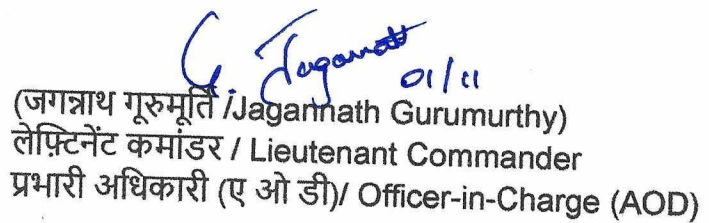 G. Jagannath
01/11
(जगन्नाथ गूरुमूर्ति /Jagannath Gurumurthy)
लेफ़्टिनेंट कमांडर / Lieutenant Commander
प्रभारी अधिकारी (ए ओ डी)/ Officer-in-Charge (AOD)